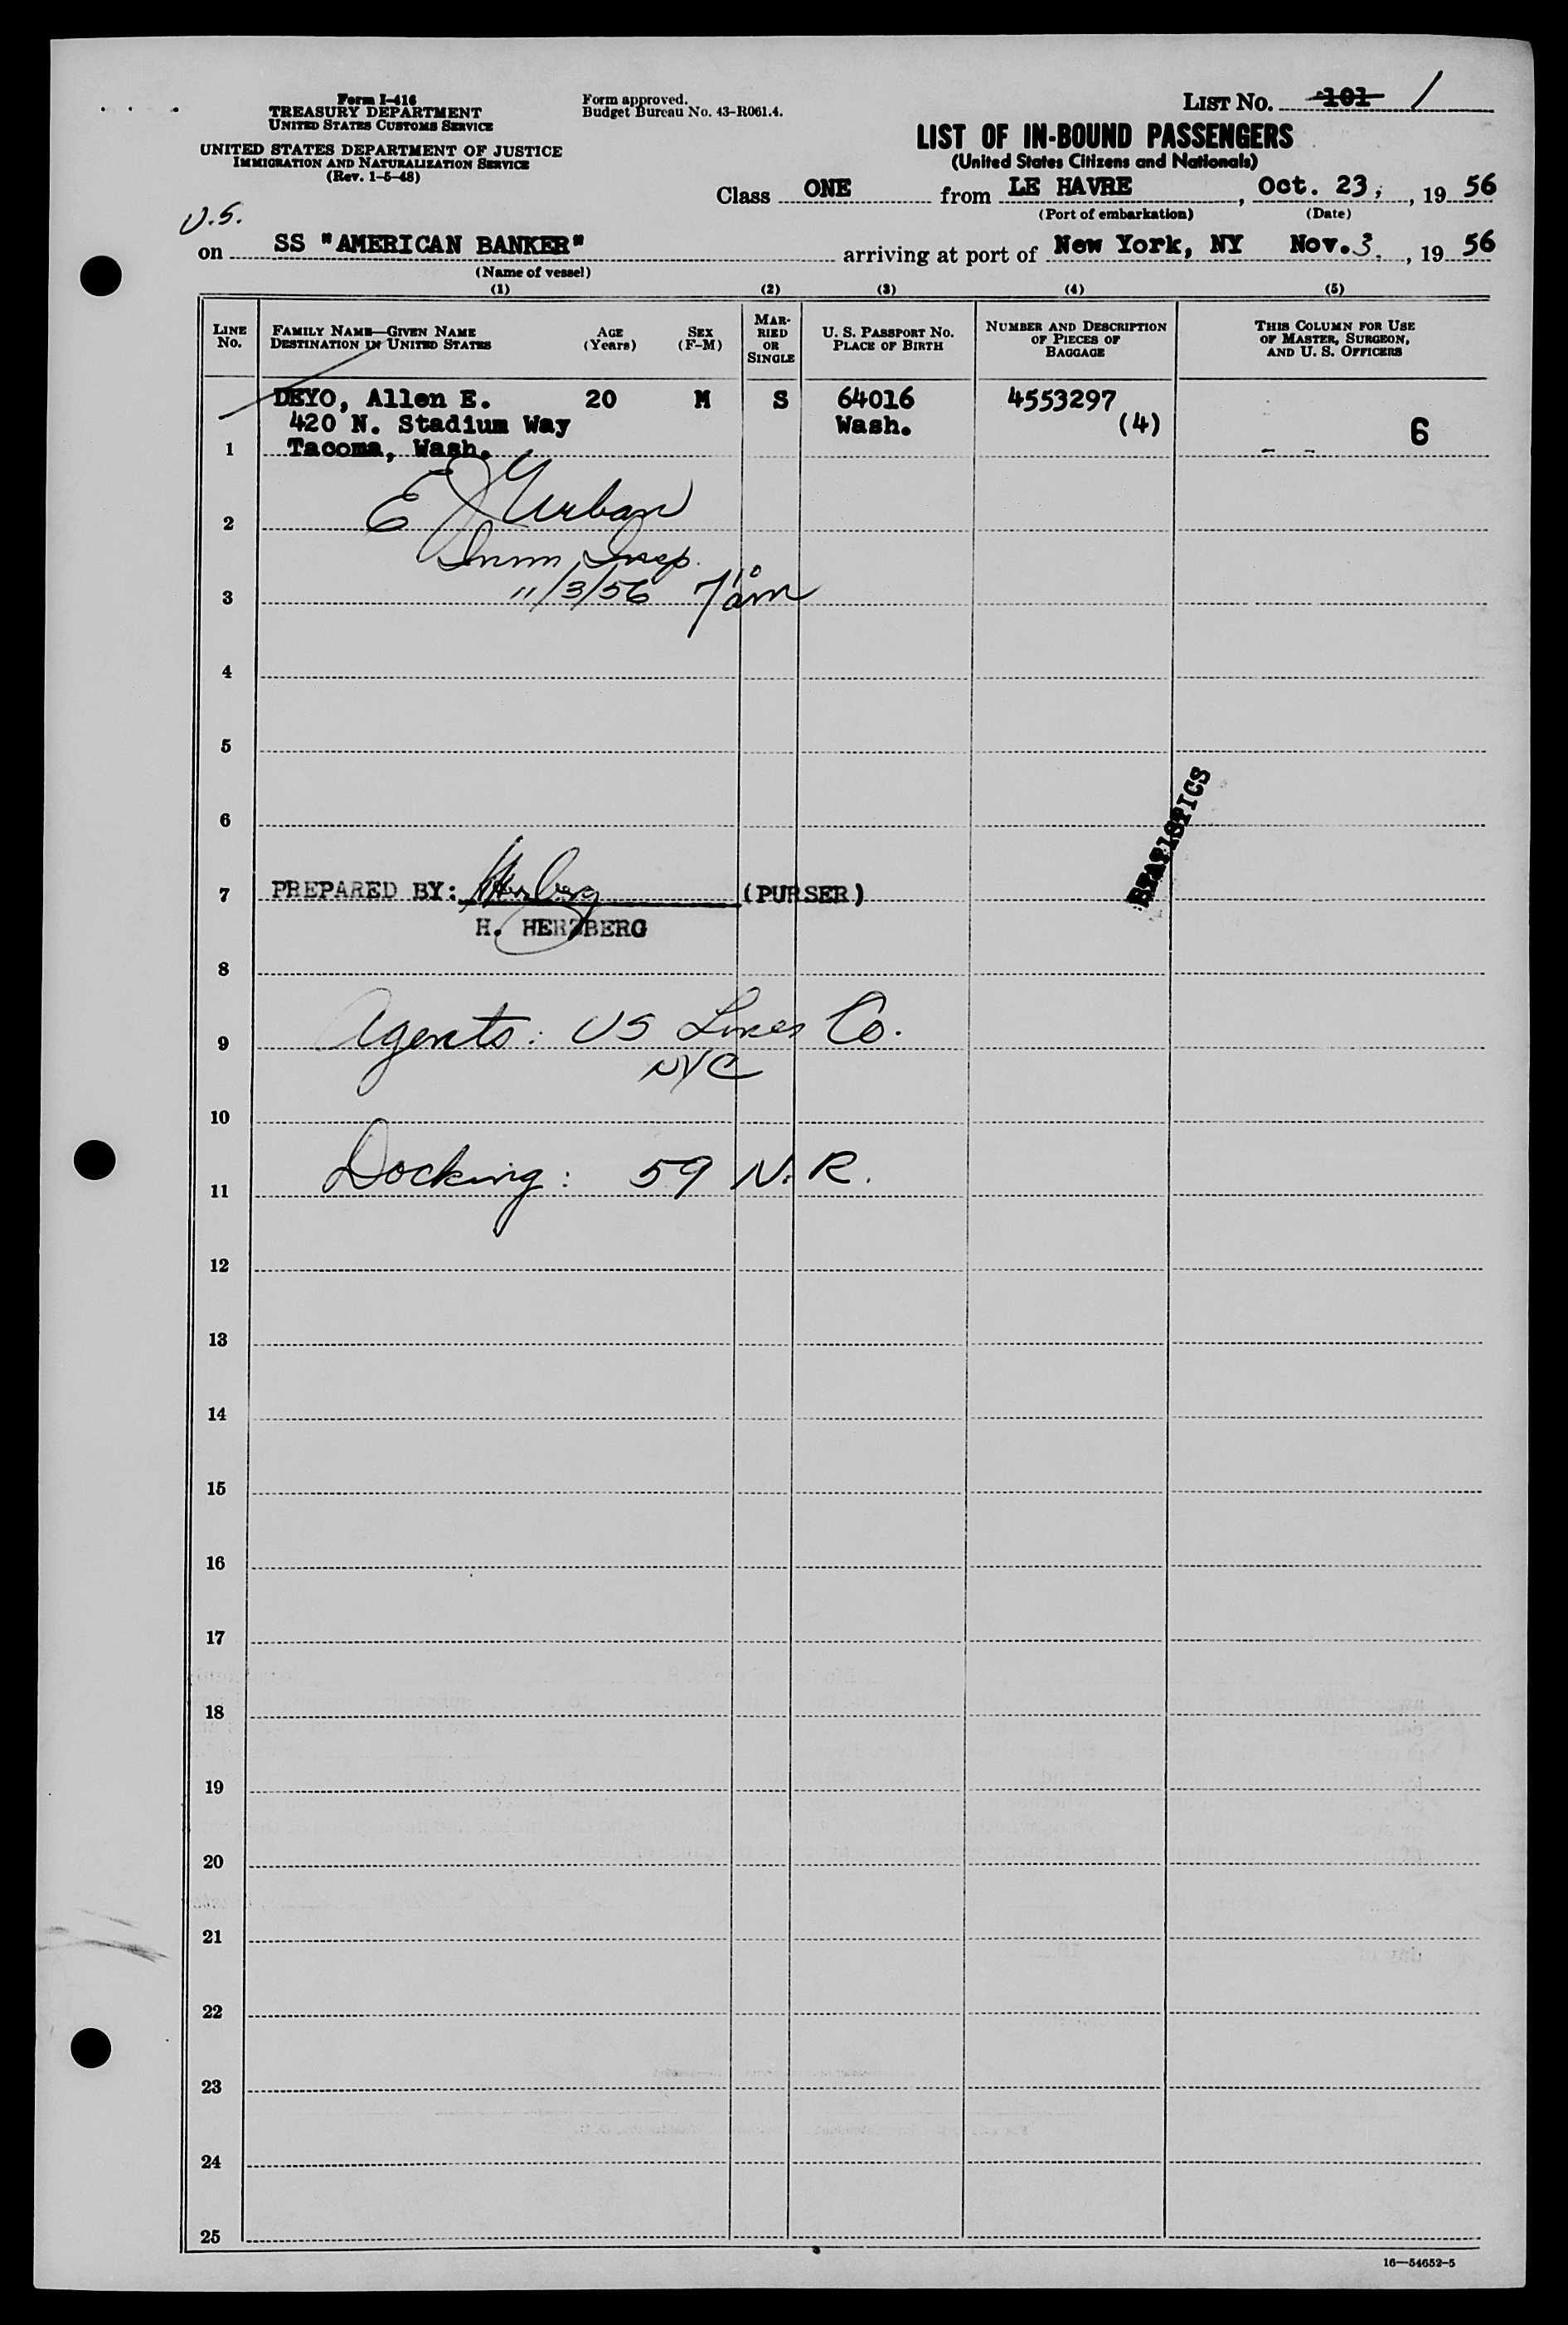 Form I-416
TREASURY DEPARTMENT
UNITED STATES CUSTOMS SERVICE
UNITED STATES DEPARTMENT OF JUSTICE
IMMIGRATION AND NATURALIZATION SERVICE
(Rev. 1-5-48)
Form approved.
Budget Bureau No. 43-R061.4.
LIST NO. 101 1
LIST OF IN-BOUND PASSENGERS
(United States Citizens and Nationals)
Class ONE from LE HAVRE, Oct. 23, , 19 56
(Port of embarkation) (Date)
U.S.
on SS "AMERICAN BANKER" arriving at port of New York, NY Nov. 3. , 19 56
(Name of vessel)
(1) (2) (3) (4) (5)
LINE No.
FAMILY NAME—GIVEN NAME
DESTINATION IN UNITED STATES
AGE (Years)
SEX (F-M)
MARRIED OR SINGLE
U. S. PASSPORT NO.
PLACE OF BIRTH
NUMBER AND DESCRIPTION
OF PIECES OF
BAGGAGE
THIS COLUMN FOR USE
OF MASTER, SURGEON,
AND U. S. OFFICERS
DEYO, Allen E. 20 M S 64016 4553297
420 N. Stadium Way Wash. (4) 6
1 Tacoma, Wash. - -
2 E J Urban
Imm Insp.
3 11/3/56 7:10 am
4
5
6
STATISTICS
7 PREPARED BY: (PURSER)
H. HERZBERG
8
9 Agents: US Lines Co.
NYC
10
11 Docking: 59 N. R.
12
13
14
15
16
17
18
19
20
21
22
23
24
25
16—54652-5